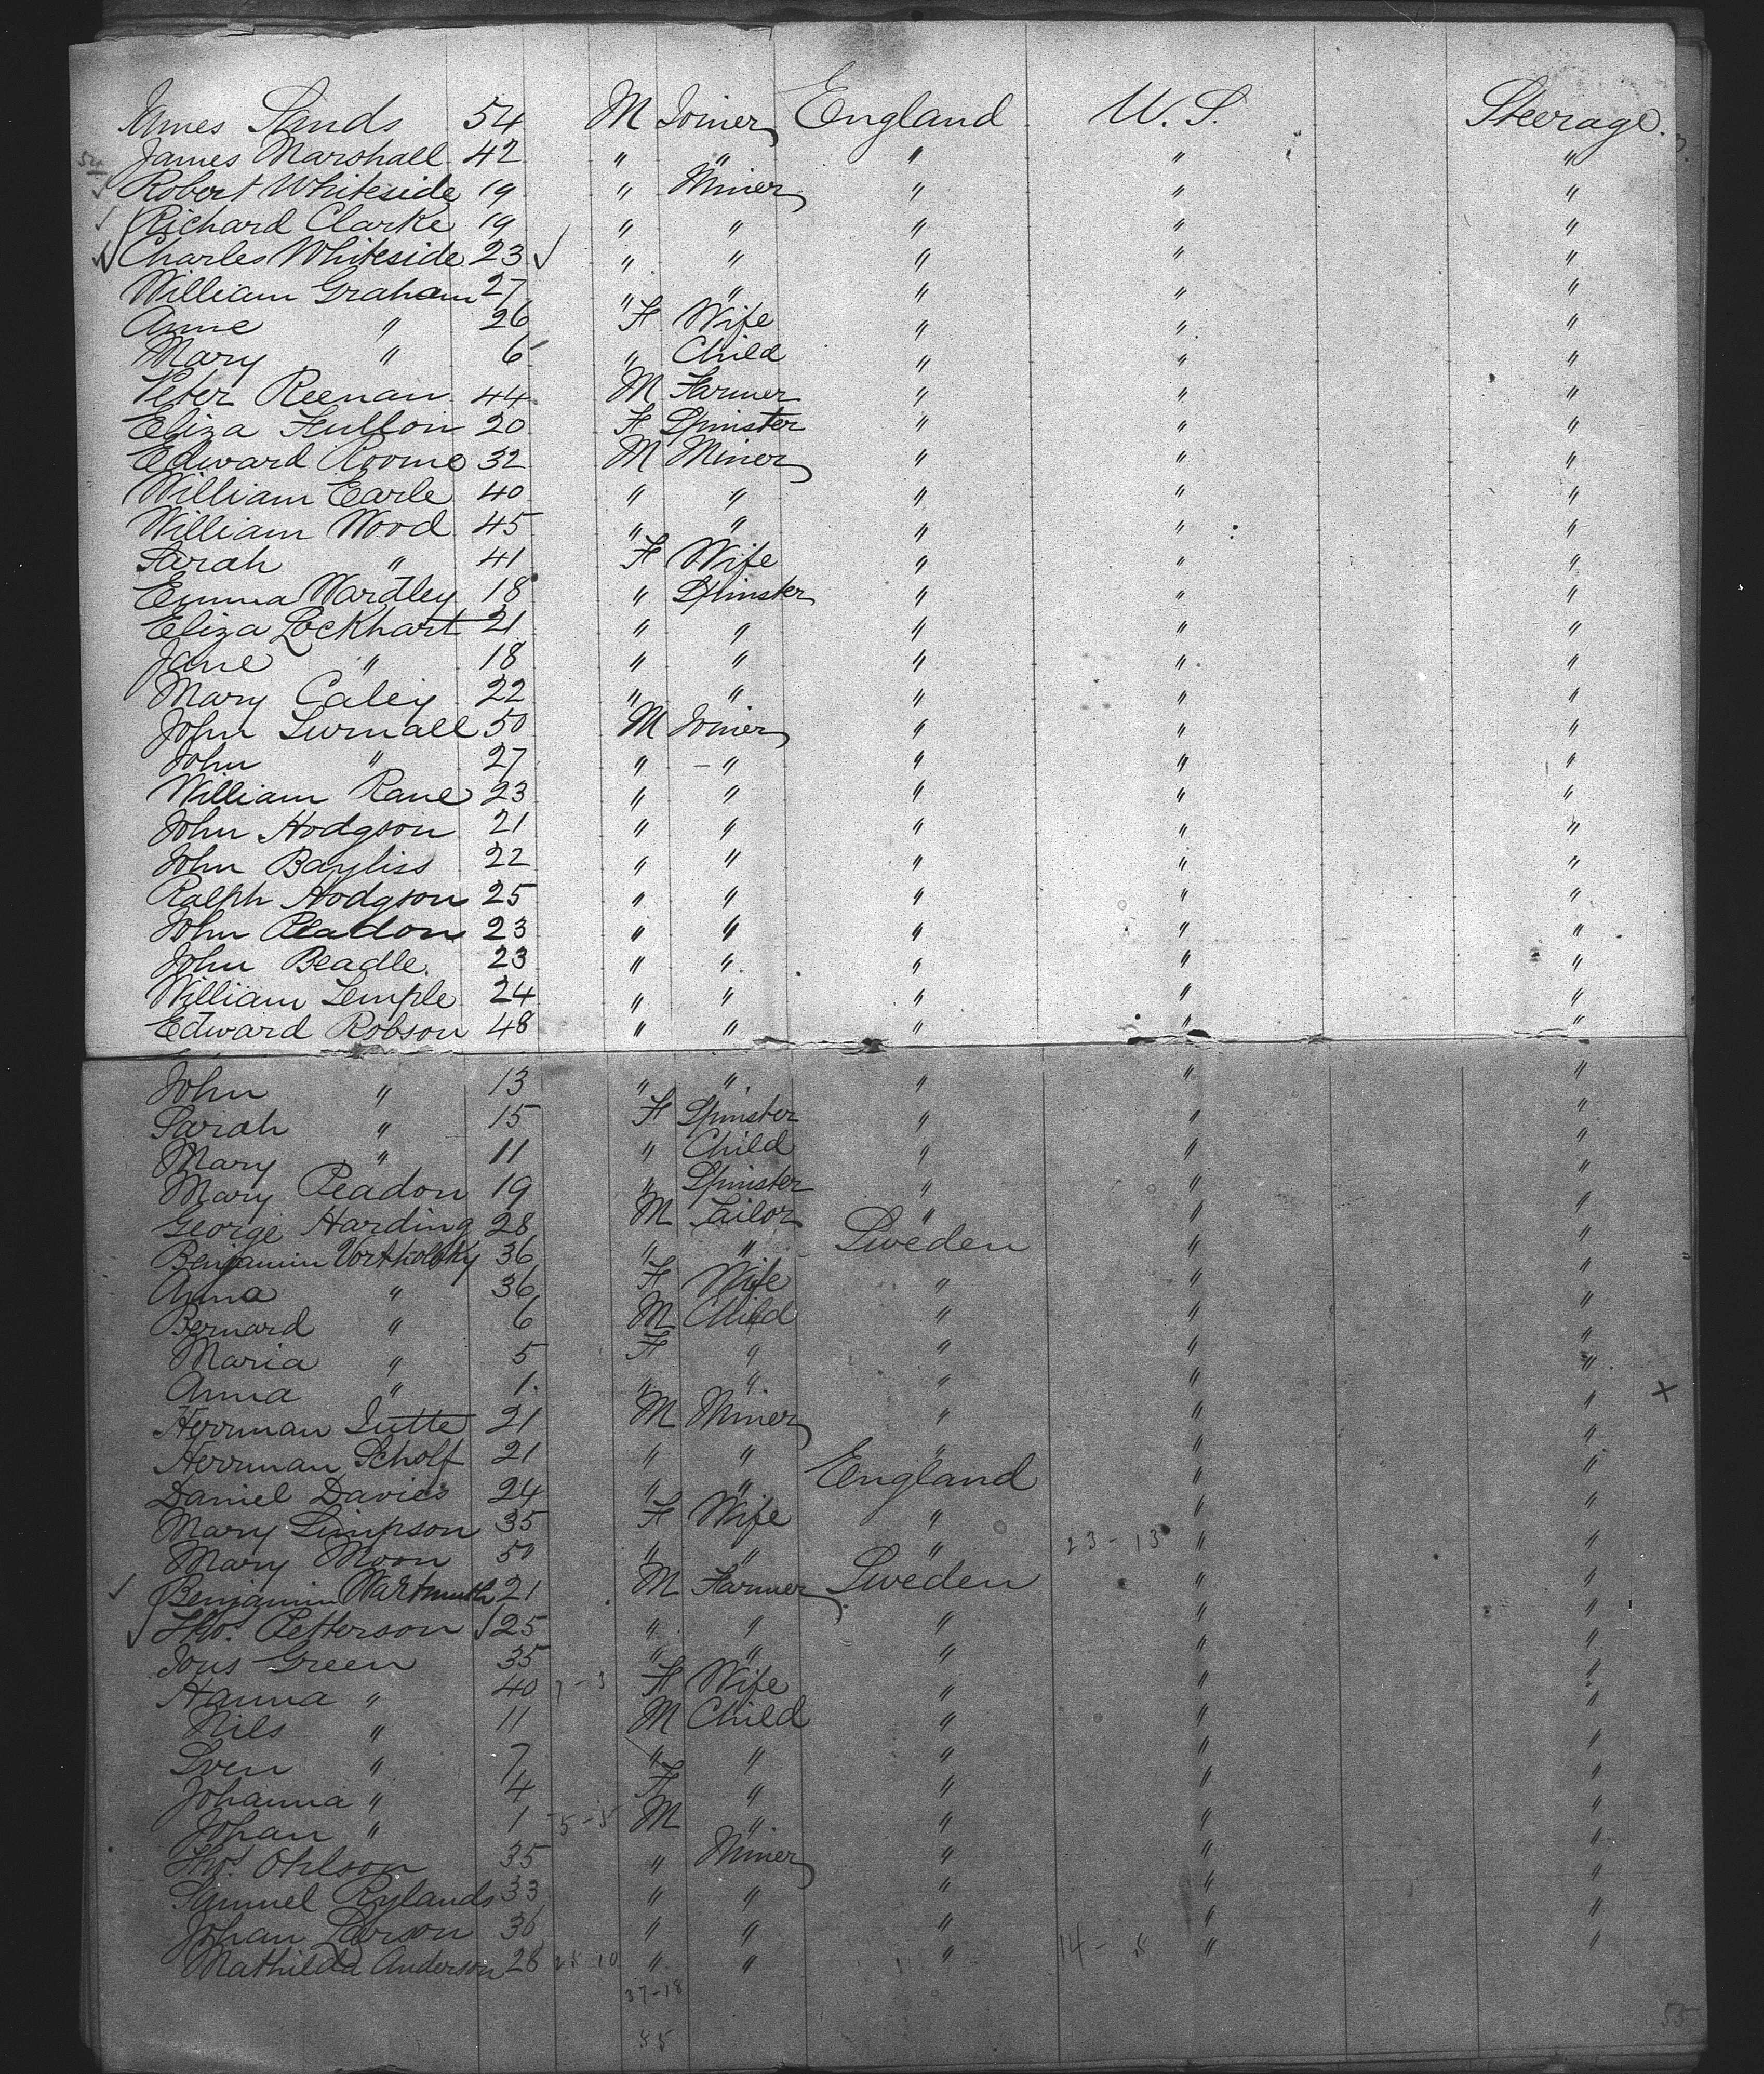 James Sands 54 M Joiner England U. S. Steerage.
James Marshall 42 " " " " "
Robert Whiteside 19 " Miner " " "
Richard Clarke 19 " " " " "
Charles Whiteside 23 " " " " "
William Graham 27 " " " " "
Anne " 26 F Wife " " "
Mary " 6 " Child " " "
Peter Keenan 44 M Farmer " " "
Eliza 20 F Spinster " " "
Edward Roome 32 M Miner " " "
William Earle 40 " " " " "
William Wood 45 " " " " "
Sarah " 41 F Wife " " "
Emma Wardley 18 " Spinster " " "
Eliza Lockhart 21 " " " " "
Jane " 18 " " " " "
Mary Caley 22 " " " " "
John 50 M Joiner " " "
John " 27 " " " " "
William Kane 23 " " " " "
John Hodgson 21 " " " " "
John Bayliss 22 " " " " "
Ralph Hodgson 25 " " " " "
John Peadon 23 " " " " "
John Beadle. 23 " " " " "
William Temple 24 " " " " "
Edward Robson 48 " " " " "
John " 13 " " " " "
Sarah " 15 F Spinster " " "
Mary " 11 " Child " " "
Mary Peadon 19 " Spinster " " "
George Harding 28 M Tailor " " "
Benjamin 36 " " Sweden " "
Anna " 36 F Wife " " "
Bernard " 6 M Child " " "
Maria " 5 F " " " "
Anna " 1. " " " " "
Herrman Lutte 21 M Miner " " "
Herrman Scholf 21 " " " " "
Daniel Davies 24 " " England " "
Mary Simpson 35 F Wife " " "
Mary Moon 50 " " " 23-13 " "
Benjamin Wartmuth 21 M Farmer Sweden " "
Thos. Petterson 25 " " " " "
Jons Green 35 " " " " "
Hanna " 40 F Wife " " "
Nils " 11 M Child " " "
Sven " 7 " " " " "
Johanna " 4 F " " " "
Johan " 1 M " " " "
Thos. Ohlson 35 " Miner " " "
Samuel Rylands 33 " " " " "
Johan Larson 36 " " " " "
Mathilda Anderson 28 " " " " "
37-18
55